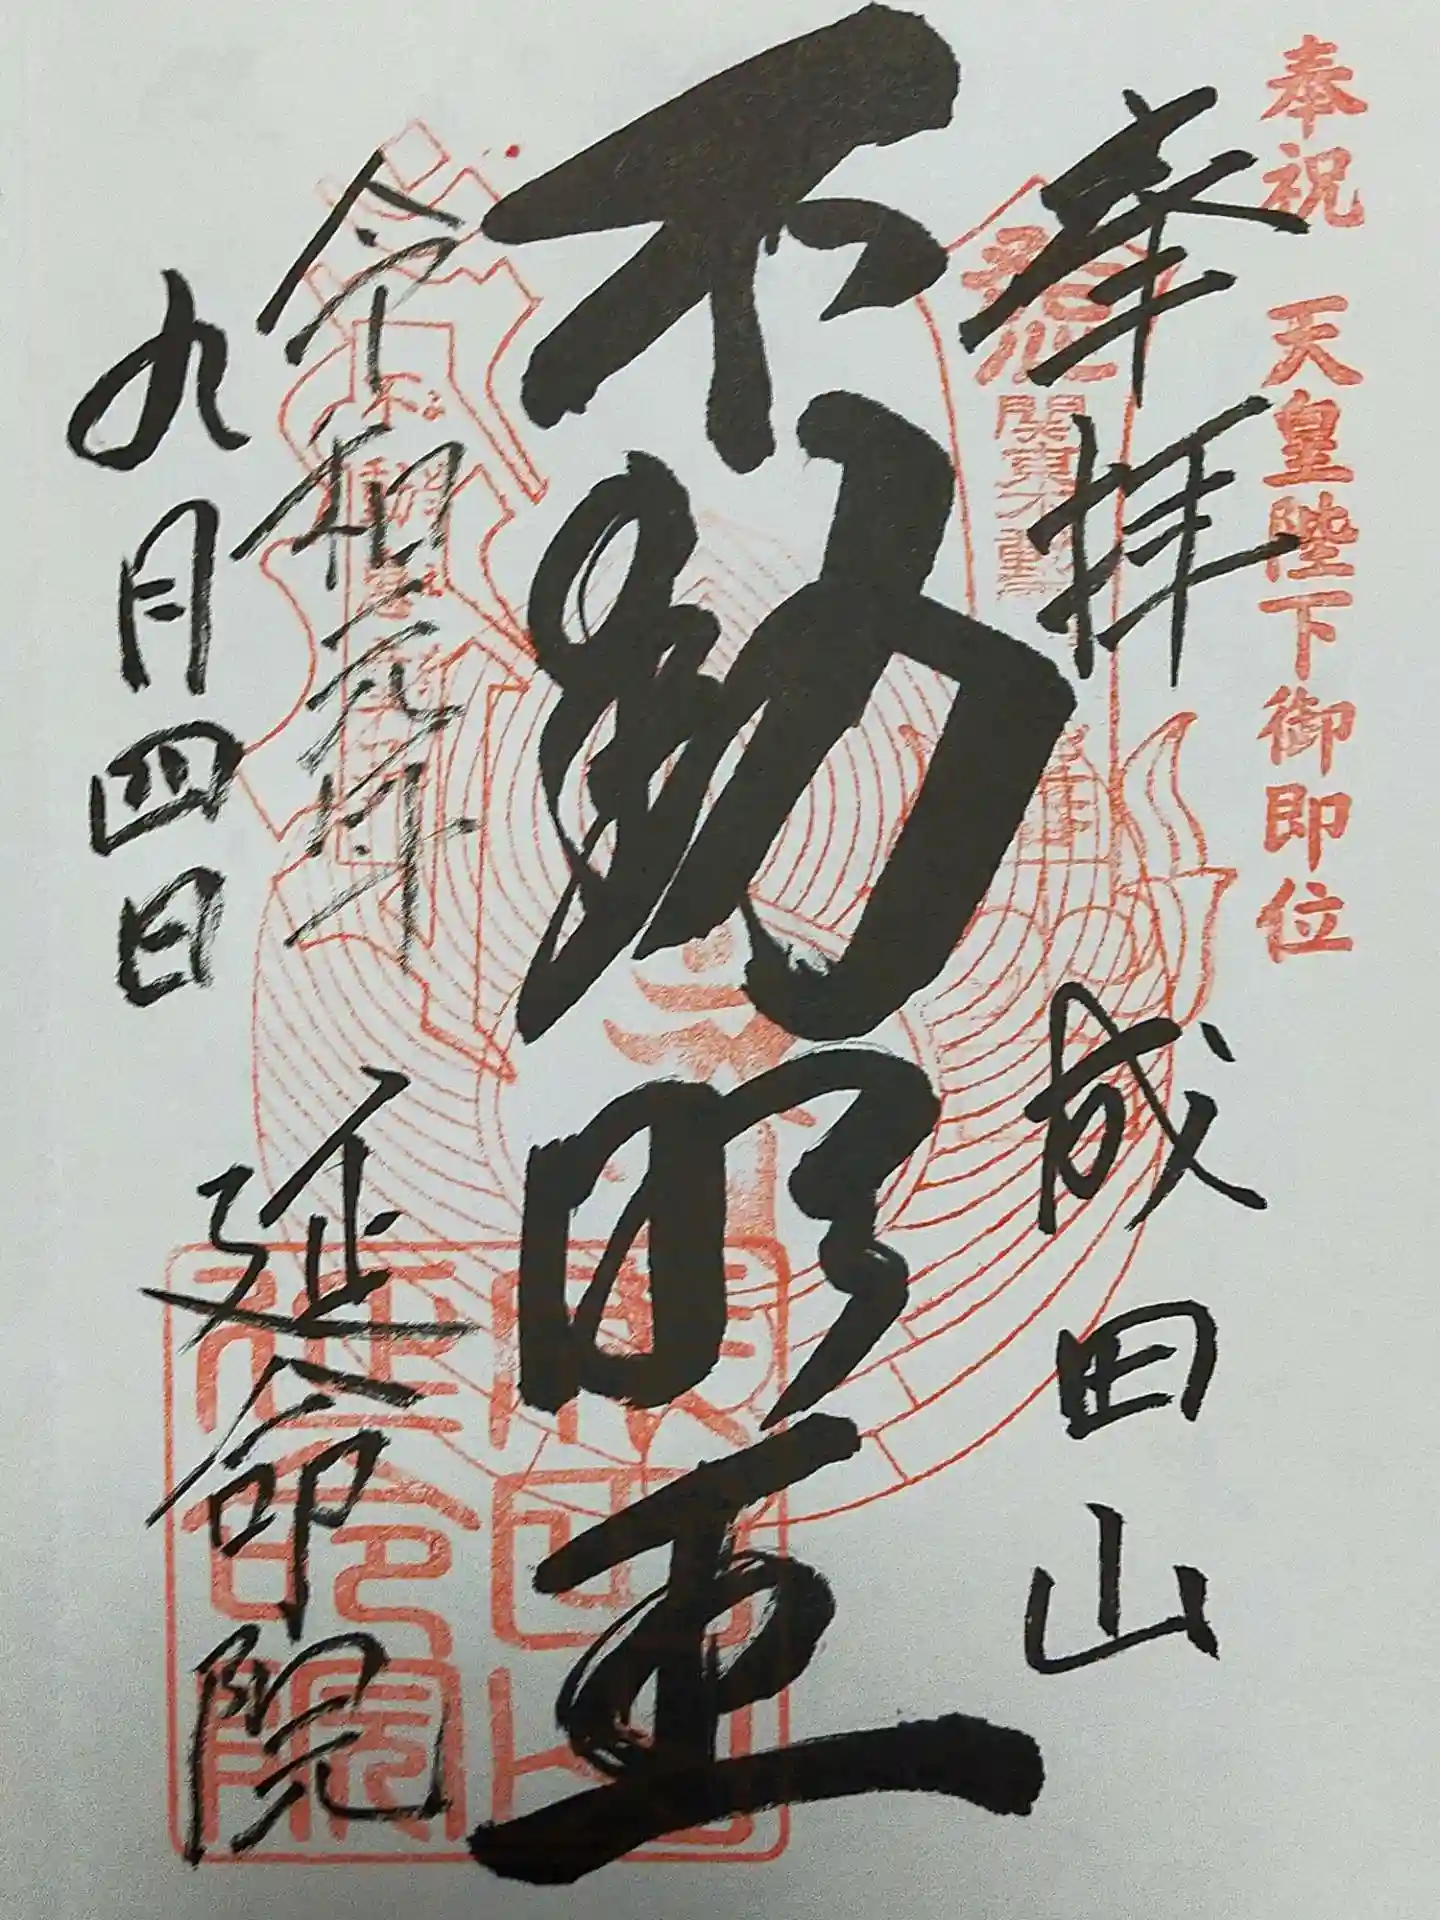 奉祝 天皇陛下御即位
奉拝 成田山
不動明王
令和元年
九月四日
延命院
成田山
延命院